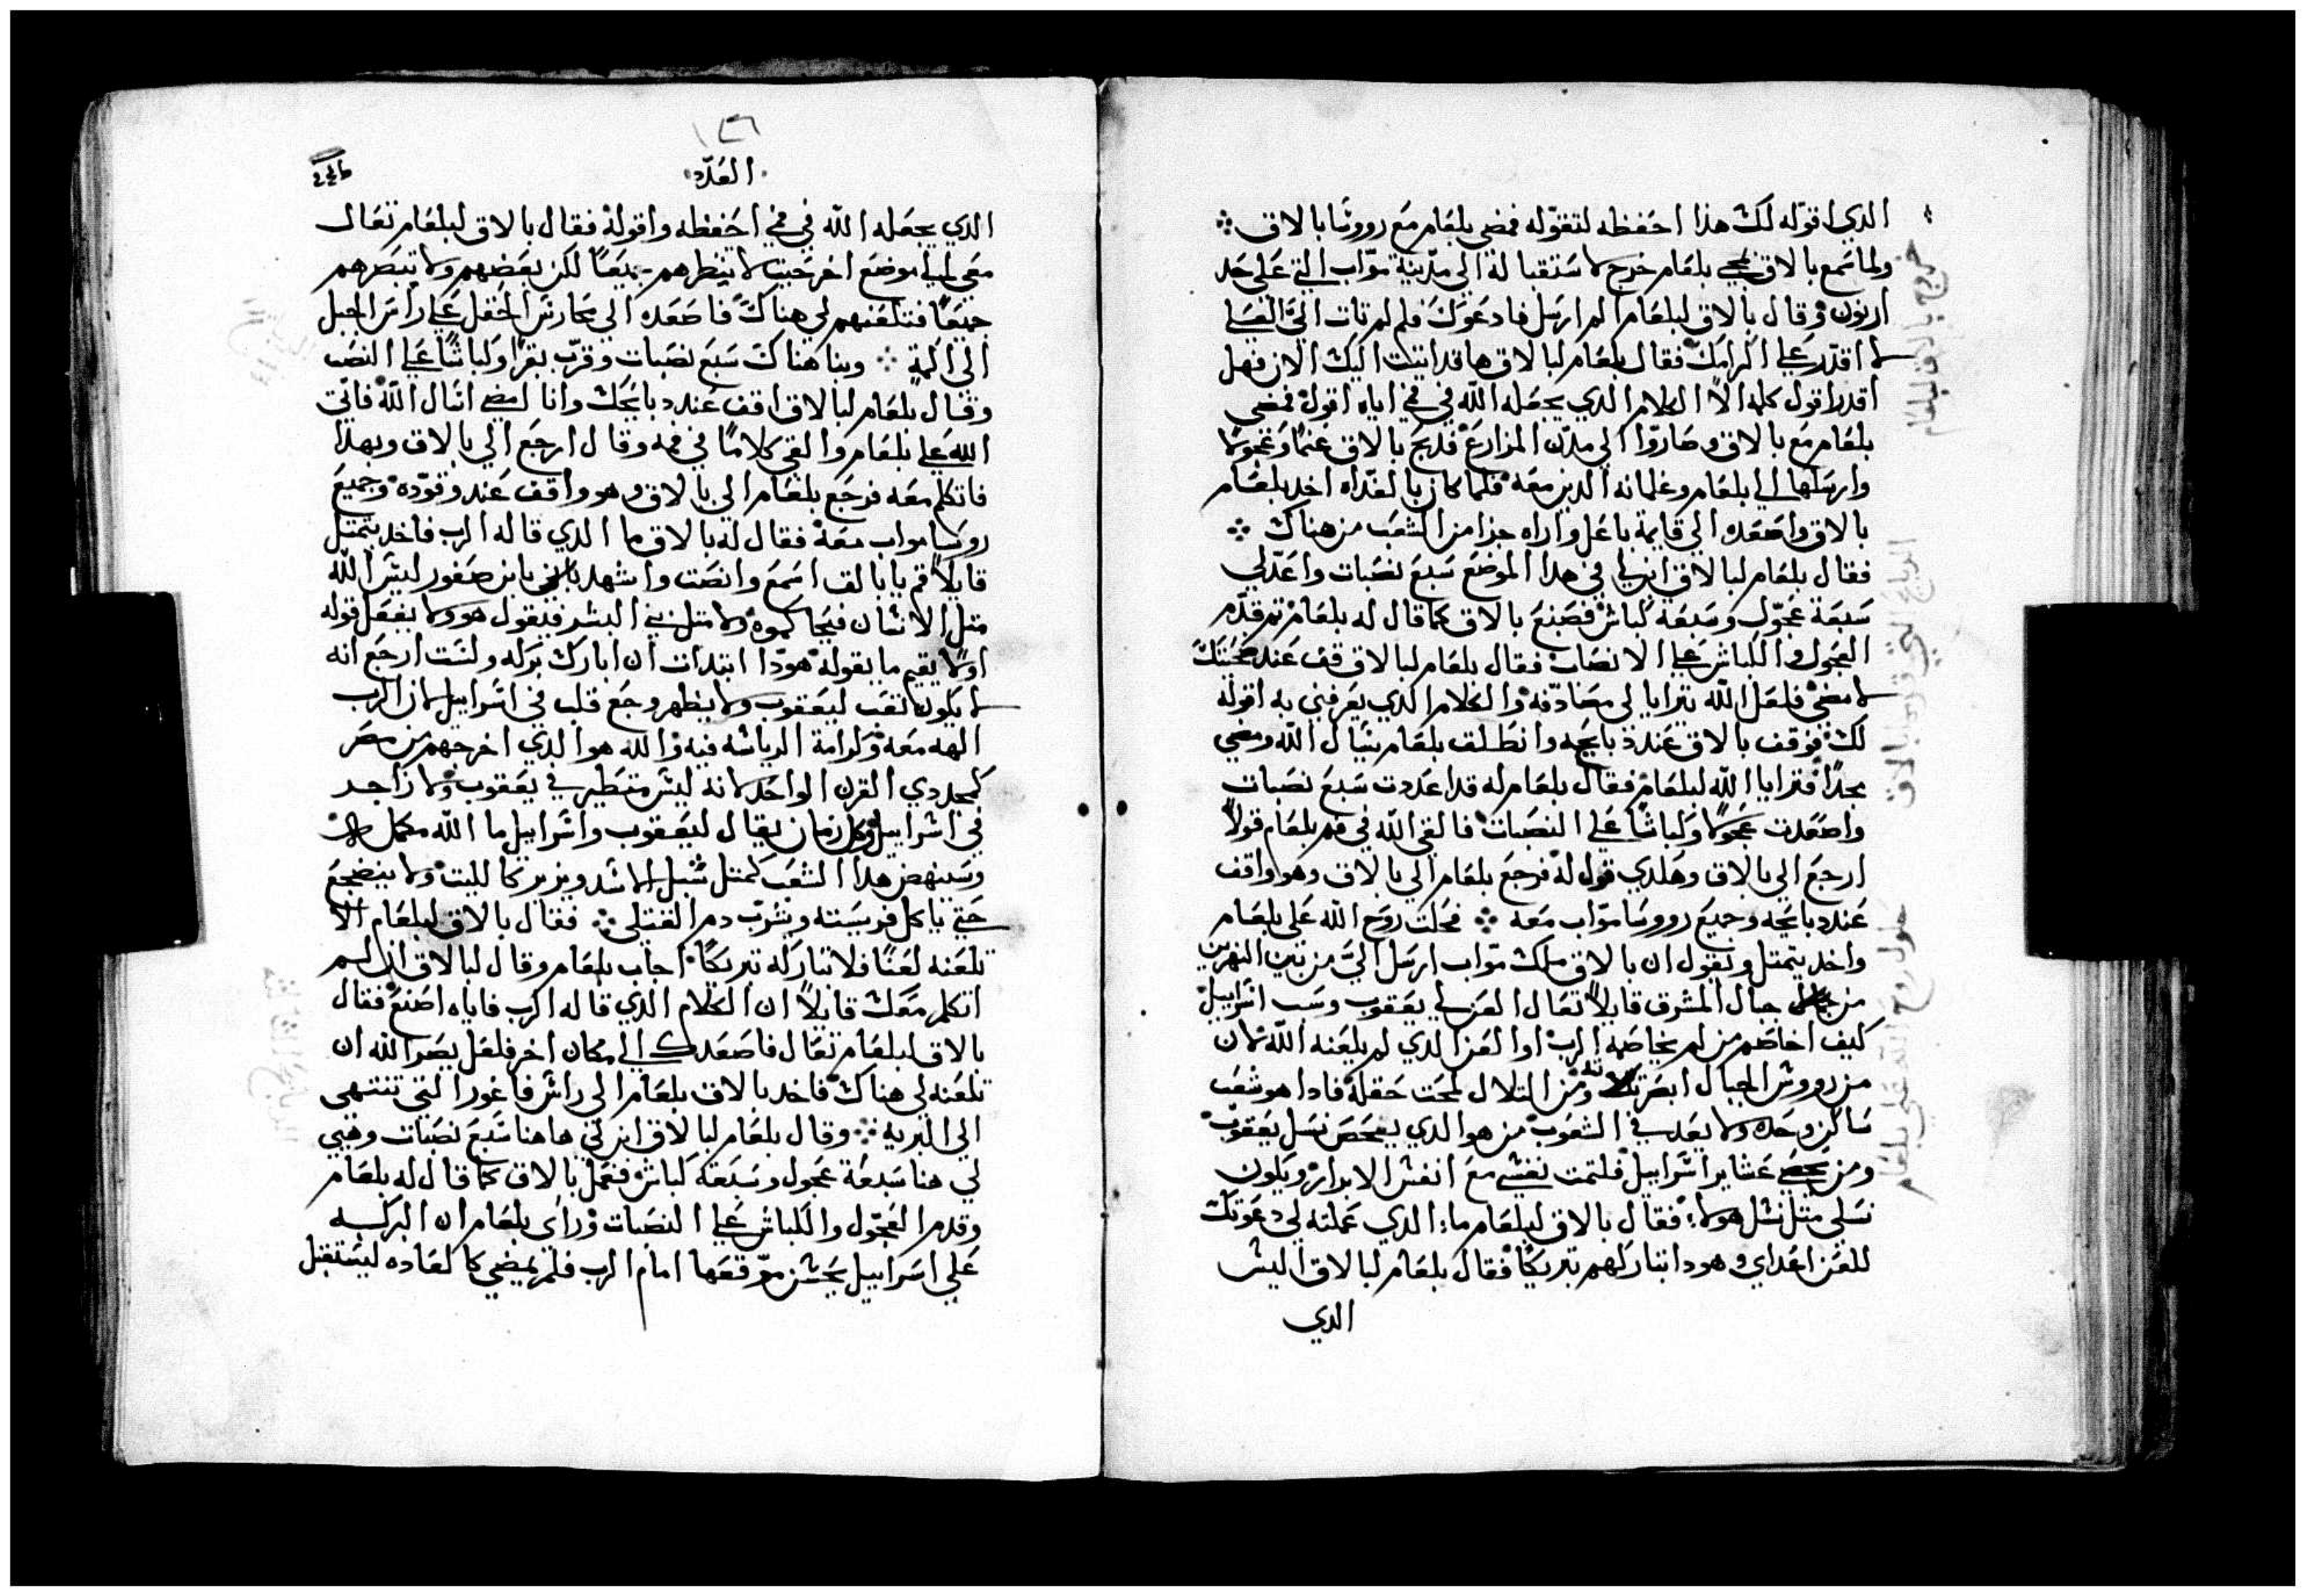 الدي اقوله لك هذا احفظه لتقوله فمضى بلعام مع رووسا بالاق
ولما سمع بالاق بمجي بلعام خرج لاستقباله الي مدينة مواب التي على حد
ارنون وقال بالاق لبلعام الم ارسل فادعوك فلم لم تات اليّ العلي
لا اقدر علي اكرامك فقال بلعام لبالاق هاقد اتيت اليك الان فهل
اقدر اقول كلمه الا الكلام الدي يجعله الله في في اياه اقول فمضي
بلعام مع بالاق وصاروا الي مدن المزارع فدبح بالاق غنمًا وعجولا
وارسلها الي بلعام وغلمانه الدين معه فلما كان بالغداه اخد بلعام
بالاق واصعده الي قايمة باعل واراه جزا من الشعب من هناك
فقال بلعام لبالاق ابن لي في هدا الموضع سبع نصبات واعد لي
سبعة عجول وسبعة كباش فصنع بالاق كما قال له بلعام تم قدم
العجول والكباش علي الانصاب فقال بلعام لبالاق قف عند ضحيتك
لامضي فلعل الله يترايا لي مصادفه والكلام الدي يعرفني به اقوله
لك فوقف بالاق عند دبايحه وانطلق بلعام يسال الله ومضي
مجدًا فترايا الله لبلعام فقال بلعام له قد اعددت سبع نصبات
واصعدت عجولا وكباشًا علي النصبات فالقي الله في فم بلعام قولاً
ارجع الي بالاق وهكدي قول له فرجع بلعام الي بالاق وهو واقف
عند دبايحه وجميع رووسا مواب معه فحلت روح الله على بلعام
واخد يتمتل ويقول ان بالاق ملك مواب ارسل اليّ من بين النهرين
من جبال المشرق قايلاً تعال العن لي يعقوب وسب اسراييل
كيف اخاصم من لم يخاصمه الرب او العن الدي لم يلعنه الله لان
من رووش الجبال ابصرته ومن التلال لمحت حقله فادا هو شعب
ساكن وحده ولا يعد في الشعوب من هو الدي يفحص نسل يعقوب
ومن يحصي عشاير اسراييل فلتمت نفسي مع انفس الابرار ويكون
نسلي متل نسل هولا فقال بالاق لبلعام ما الدي عملته لي دعوتك
للعن اعداي وهودا تباركهم تبريكًا فقال بلعام لبالاق اليس
الدي
خروج بالاق لبلعام
حلول روح الله على بلعام
العدد
الدي يجعله الله في في احفظه واقوله فقال بالاق لبلعام تعال
معي الي موضع اخر حيت لا تنظرهم جميعًا لكن بعضهم ولا تبصرهم
جميعًا فتلعنهم لي هناك فاصعده الي محارس الحقل علي راس الجبل
الي اكمة وبنا هناك سبع نصبات وقرب بقرًا وكباشًا علي النصب
وقال بلعام لبالاق اقف عند دبايحك وانا امضي اسال الله فاتي
الله علي بلعام والقي كلامًا في فمه وقال ارجع الي بالاق وبهدا
فاتكلم معه فرجع بلعام الي بالاق وهو واقف عند وقوده وجميع
روسا مواب معه فقال له بالاق ما الدي قاله الرب فاخد يتمتل
قايلاً قم يا بالاق اسمع وانصت واشهد يا بن صفور ليس الله
متل الانسان فيحاكموه ولا متل بني البشر فيقول هو ولا يفعل قوله
اولا يقيم ما يقوله هودا ابتدات ان ابارك بركه ولست ارجع انه
لا يكون تعب ليعقوب ولا يظهر وجع قلب في اسراييل لان الرب
الهه معه وكرامة الرياسه فيه والله هو الدي اخرجهم من مصر
كمجد دي القرن الواحد لانه ليس متطير في يعقوب ولا زاجر
في اسراييل وكل زمان يقال ليعقوب واسراييل ما الله مكمل
وسينهض هدا الشعب كمتل شبل الاسد ويزير كالليت ولا ينضجع
حتي ياكل فريسته ويشرب دم القتلى فقال بالاق لبلعام الا
تلعنه لعنًا فلا تباركه تبريكًا اجاب بلعام وقال لبالاق اني لم
اتكلم معك قايلاً ان الكلام الدي قاله الرب فاياه اصنع فقال
بالاق لبلعام تعال فاصعدك الي مكان اخر فلعل يصر الله ان
تلعنه لي هناك فاخد بالاق بلعام الي راس فاغور التي تنتهي
الي البريه وقال بلعام لبالاق ابن لي هاهنا سبع نصبات وهيي
لي هنا سبعة عجول وسبعة كباش ففعل بالاق كما قال له بلعام
وقدم العجول والكباش علي النصبات وراى بلعام ان البركه
علي اسراييل يحسن موقعها امام الرب فلم يمضي كالعاده ليستقبل